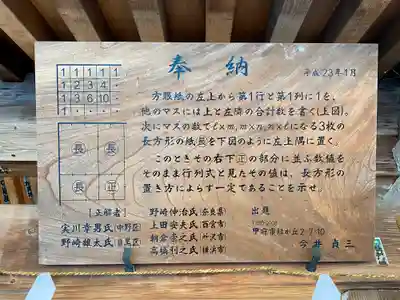 奉納
平成23年1月
1 1 1 1 ・
1 2 3 4 ・
1 3 6 10 ・
1 ・ ・ ・
方眼紙の左上から第1行と第1列に1を、
他のマスには上と左隣の合計数を書く(上図)。
次にマスの数でℓ×m, m×n, n×ℓになる3枚の
長方形の紙長を下図のように左上隅に置く。
このときその右下正の部分に並ぶ数値を
そのまま行列式と見たその値は、長方形の
置き方によらず一定であることを示せ。
長 長
長 正
[正解者]
実川幸男氏(中野区)
野崎雄太氏(目黒区)
野崎伸治氏(奈良県)
上田安夫氏(西宮市)
朝倉崇之氏(所沢市)
高橋利之氏(横浜市)
出題
甲府市緑が丘2-7-10
今井貞三